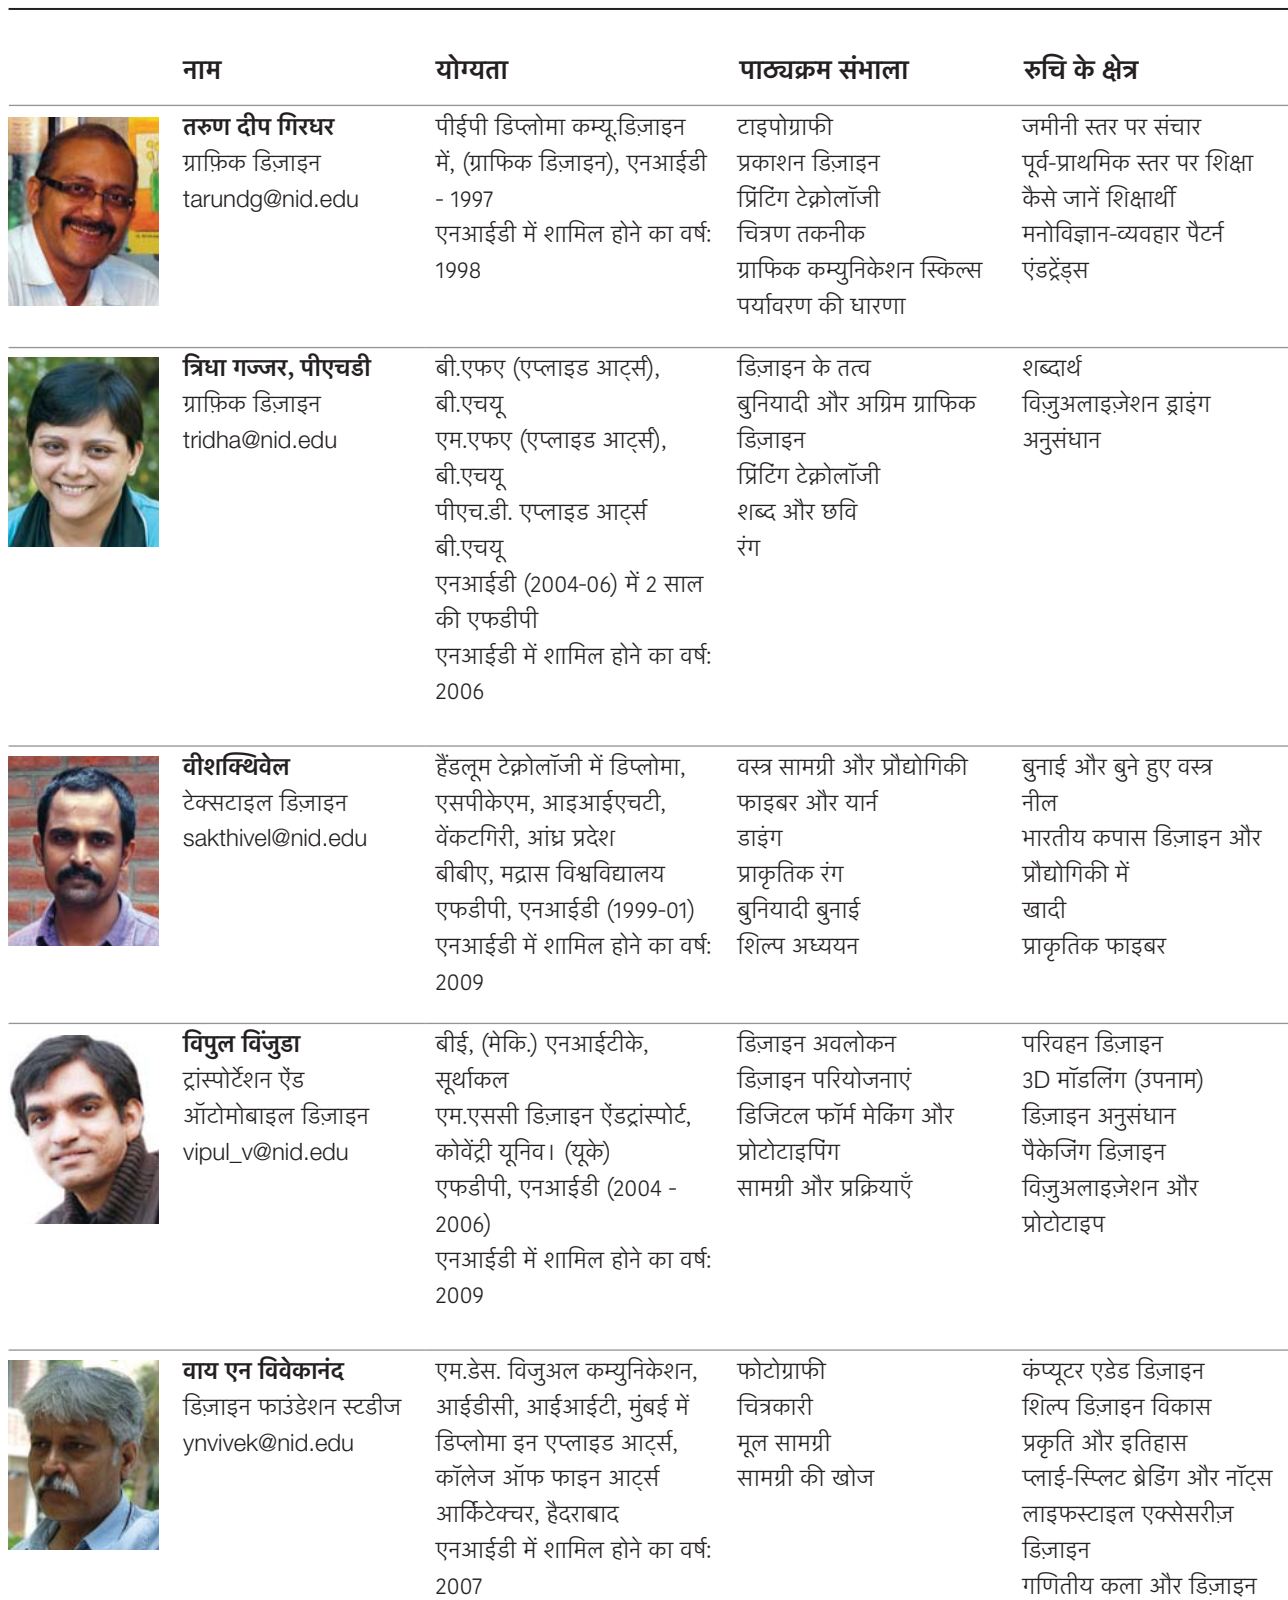 नाम
योग्यता
पाठ्यक्रम संभाला
रुचि के क्षेत्र
तरुण दीप गिरधर
ग्राफ़िक डिज़ाइन
tarundg@nid.edu
पीईपी डिप्लोमा कम्यू.डिज़ाइन
में, (ग्राफिक डिज़ाइन), एनआईडी
- 1997
एनआईडी में शामिल होने का वर्ष:
1998
टाइपोग्राफी
प्रकाशन डिज़ाइन
प्रिंटिंग टेक्नोलॉजी
चित्रण तकनीक
ग्राफिक कम्युनिकेशन स्किल्स
पर्यावरण की धारणा
जमीनी स्तर पर संचार
पूर्व-प्राथमिक स्तर पर शिक्षा
कैसे जानें शिक्षार्थी
मनोविज्ञान-व्यवहार पैटर्न
एंडट्रेंड्स
त्रिधा गज्जर, पीएचडी
ग्राफ़िक डिज़ाइन
tridha@nid.edu
बी.एफए (एप्लाइड आर्ट्स),
बी.एचयू
एम.एफए (एप्लाइड आर्ट्स),
बी.एचयू
पीएच.डी. एप्लाइड आर्ट्स
बी.एचयू
एनआईडी (2004-06) में 2 साल
की एफडीपी
एनआईडी में शामिल होने का वर्ष:
2006
डिज़ाइन के तत्व
बुनियादी और अग्रिम ग्राफिक
डिज़ाइन
प्रिंटिंग टेक्नोलॉजी
शब्द और छवि
रंग
शब्दार्थ
विज़ुअलाइज़ेशन ड्राइंग
अनुसंधान
वीशक्थिवेल
टेक्सटाइल डिज़ाइन
sakthivel@nid.edu
हैंडलूम टेक्नोलॉजी में डिप्लोमा,
एसपीकेएम, आइआईएचटी,
वेंकटगिरी, आंध्र प्रदेश
बीबीए, मद्रास विश्वविद्यालय
एफडीपी, एनआईडी (1999-01)
एनआईडी में शामिल होने का वर्ष:
2009
वस्त्र सामग्री और प्रौद्योगिकी
फाइबर और यार्न
डाइंग
प्राकृतिक रंग
बुनियादी बुनाई
शिल्प अध्ययन
बुनाई और बुने हुए वस्त्र
नील
भारतीय कपास डिज़ाइन और
प्रौद्योगिकी में
खादी
प्राकृतिक फाइबर
विपुल विंजुडा
ट्रांस्पोर्टेशन ऐंड
ऑटोमोबाइल डिज़ाइन
vipul_v@nid.edu
बीई, (मेकि.) एनआईटीके,
सूर्थाकल
एम.एससी डिज़ाइन ऐंडट्रांस्पोर्ट,
कोवेंट्री यूनिव। (यूके)
एफडीपी, एनआईडी (2004 -
2006)
एनआईडी में शामिल होने का वर्ष:
2009
डिज़ाइन अवलोकन
डिज़ाइन परियोजनाएं
डिजिटल फॉर्म मेकिंग और
प्रोटोटाइपिंग
सामग्री और प्रक्रियाएँ
परिवहन डिज़ाइन
3D मॉडलिंग (उपनाम)
डिज़ाइन अनुसंधान
पैकेजिंग डिज़ाइन
विज़ुअलाइज़ेशन और
प्रोटोटाइप
वाय एन विवेकानंद
डिज़ाइन फाउंडेशन स्टडीज
ynvivek@nid.edu
एम.डेस. विजुअल कम्युनिकेशन,
आईडीसी, आईआईटी, मुंबई में
डिप्लोमा इन एप्लाइड आर्ट्स,
कॉलेज ऑफ फाइन आर्ट्स
आर्किटेक्चर, हैदराबाद
एनआईडी में शामिल होने का वर्ष:
2007
फोटोग्राफी
चित्रकारी
मूल सामग्री
सामग्री की खोज
कंप्यूटर एडेड डिज़ाइन
शिल्प डिज़ाइन विकास
प्रकृति और इतिहास
प्लाई-स्प्लिट ब्रेडिंग और नॉट्स
लाइफस्टाइल एक्सेसरीज़
डिज़ाइन
गणितीय कला और डिज़ाइन